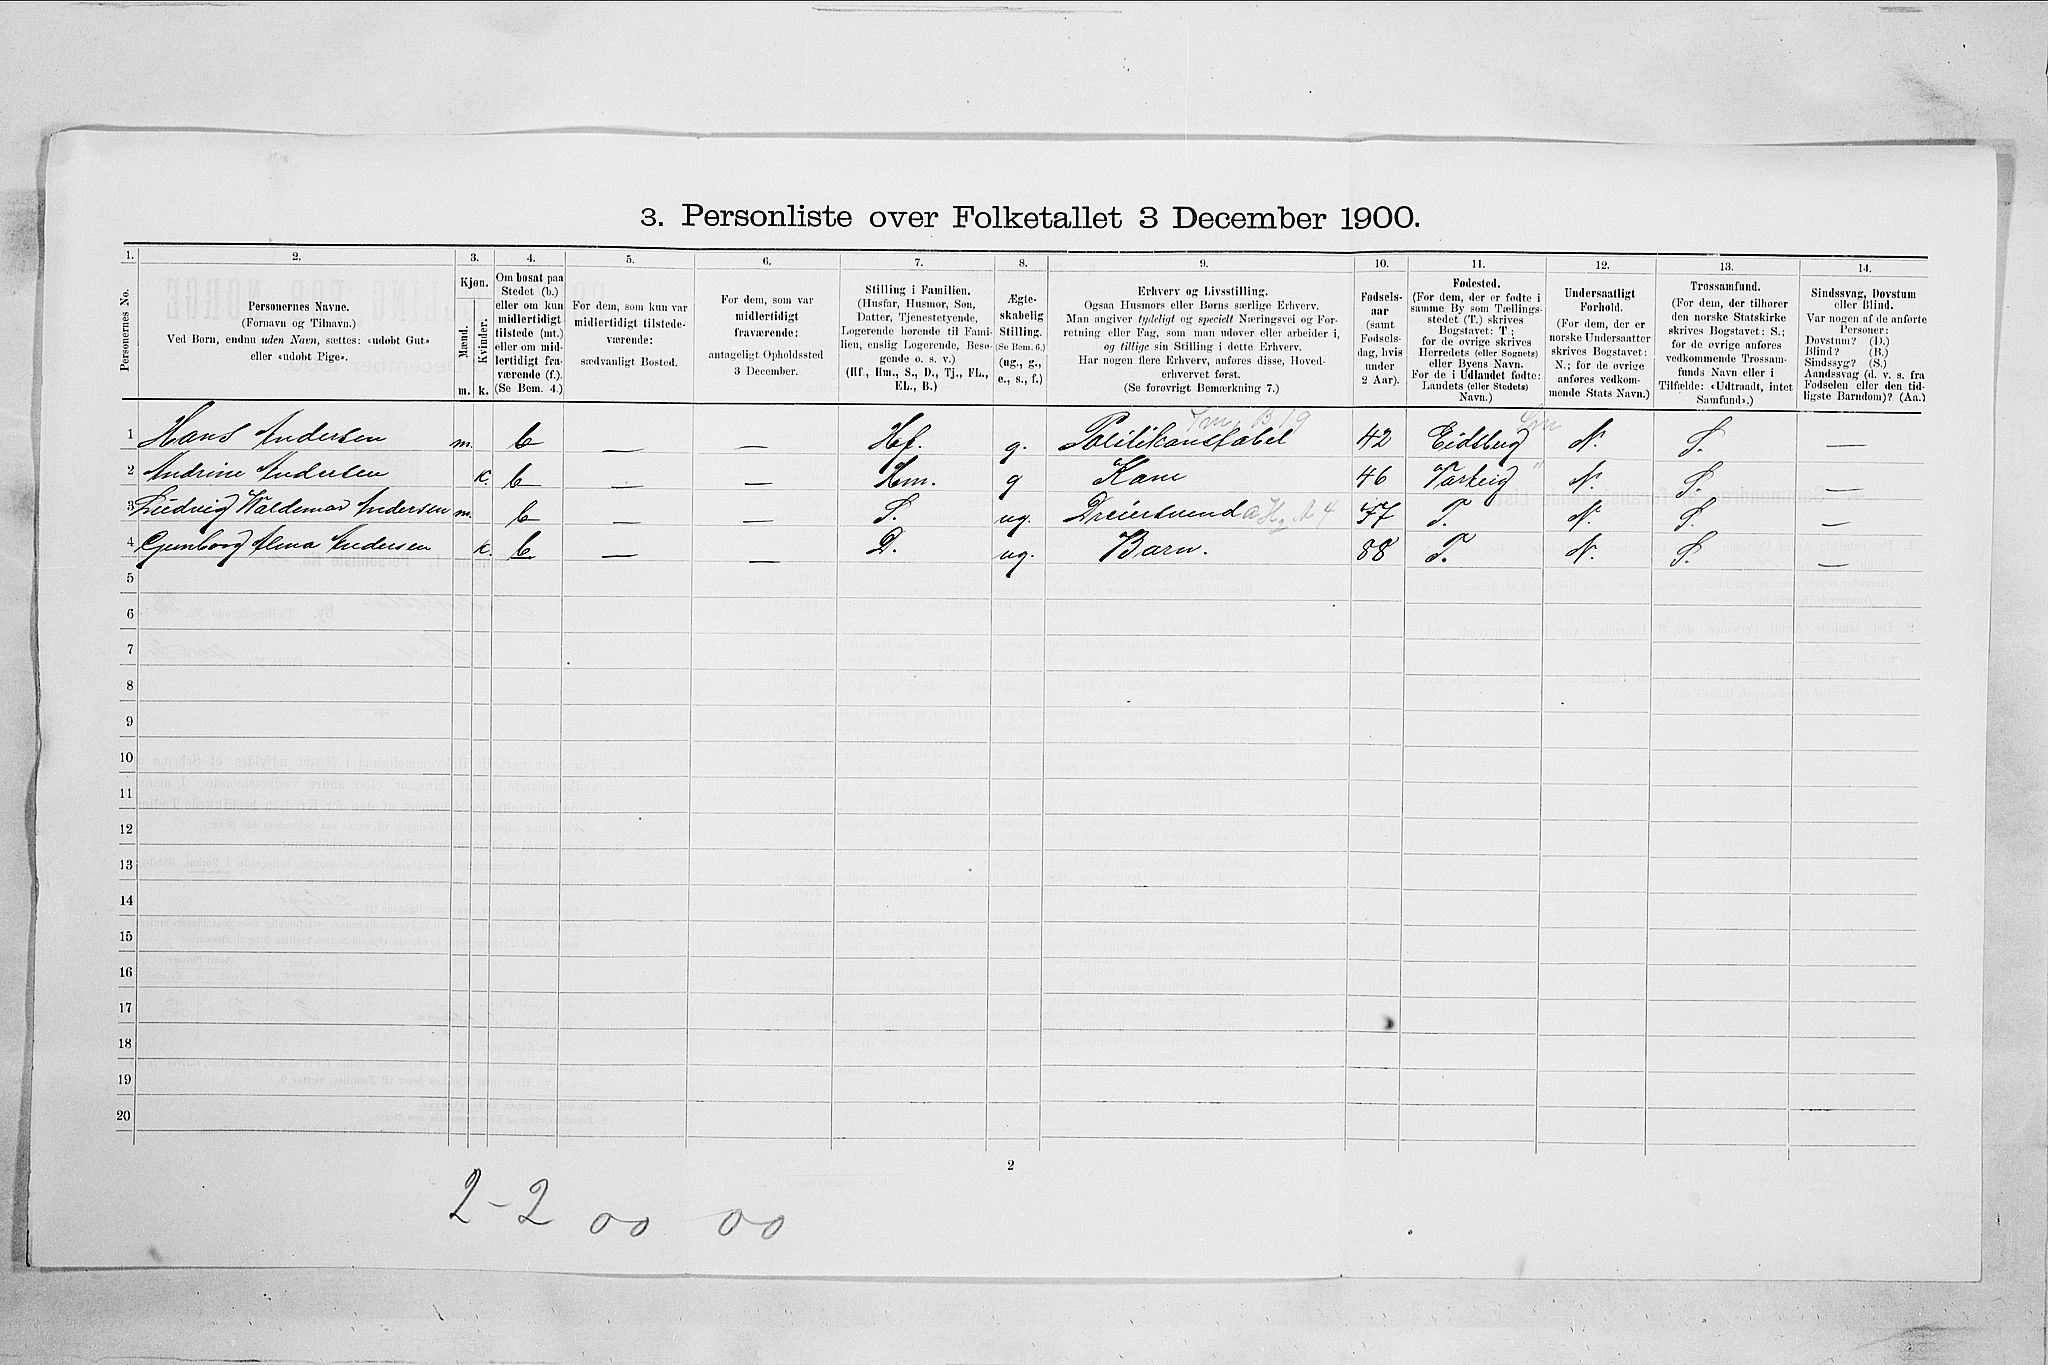 3. Personliste over Folketallet 3 December 1900.
1. 2. 3. 4. 5. 6. 7. 8. 9. 10. 11. 12. 13. 14.
Personernes No.
Personernes Navne.
(Fornavn og Tilnavn.)
Ved Børn, endnu uden Navn, sættes: «udøbt Gut»
eller «udøbt Pige».
Kjøn.
Mænd.
Kvinder.
m. k.
Om bosat paa
Stedet (b.)
eller om kun
midlertidigt
tilstede (mt.)
eller om mid-
lertidigt fra-
værende (f.).
(Se Bem. 4.)
For dem, som kun var
midlertidigt tilstede-
værende:
sædvanligt Bosted.
For dem, som var
midlertidigt
fraværende:
antageligt Opholdssted
3 December.
Stilling i Familien.
(Husfar, Husmor, Søn,
Datter, Tjenestetyende,
Logerende hørende til Fami-
lien, enslig Logerende, Besø-
gende o. s. v.)
(Hf., Hm., S., D., Tj., FL.,
EL., B.)
Ægte-
skabelig
Stilling.
(Se Bem. 6.)
(ug., g.,
e., s., f.)
Erhverv og Livsstilling.
Ogsaa Husmors eller Børns særlige Erhverv.
Man angiver tydeligt og specielt Næringsvei og For-
retning eller Fag, som man udøver eller arbeider i,
og tillige sin Stilling i dette Erhverv.
Har nogen flere Erhverv, anføres disse, Hoved-
erhvervet først.
(Se forøvrigt Bemærkning 7.)
Fødsels-
aar
(samt
Fødsels-
dag, hvis
under
2 Aar).
Fødested.
(For dem, der er fødte i
samme By som Tællings-
stedet (T.) skrives
Bogstavet: T.;
for de øvrige skrives
Herredets (eller Sognets)
eller Byens Navn.
For de i Udlandet fødte:
Landets (eller Stedets)
Navn.)
Undersaatligt
Forhold.
(For dem, der er
norske Undersaatter
skrives Bogstavet:
N.; for de øvrige
anføres vedkom-
mende Stats Navn.)
Trossamfund.
(For dem, der tilhører
den norske Statskirke
skrives Bogstavet: S.;
for de øvrige anføres
vedkommende Trossam-
funds Navn eller i
Tilfælde: «Udtraadt, intet
Samfund».)
Sindssvag, Døvstum
eller Blind.
Var nogen af de anførte
Personer:
Døvstum? (D.)
Blind? (B.)
Sindssyg? (S.)
Aandssvag (d. v. s. fra
Fødselen eller den tid-
ligste Barndom)? (Aa.)
1 Hans Andersen m. b — — Hf. g. Politikonstabel 42 Eidsberg N. S. —
2 Andrine Andersen k. b — — Hm. g Kone 46 Varteig N. S. —
3 Ludvig Waldemar Andersen m. b — — S. ug. Dreiersvend 77 T. N. S. —
4 Alma Andersen k. b — — D. ug. Barn. 88 T. N. S. —
5
6
7
8
9
10
11
12
13
14
15
16
17
18
19
20
2
2-2 00 00